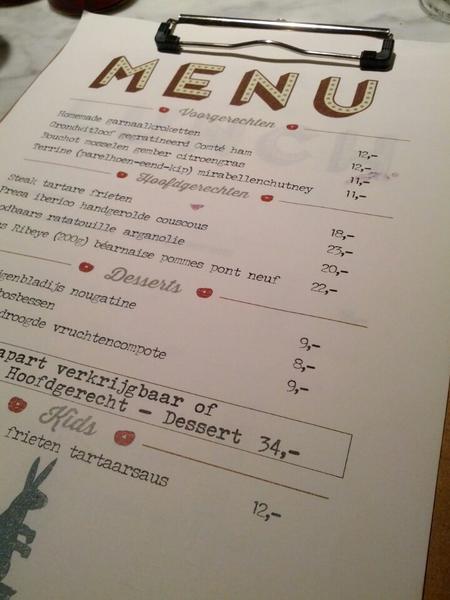 MENU
Voorgerechten
Homemade garnaalkroketten 12,-
Grondwitloof gegratineerd Comté ham 12,-
Bouchot mosselen gember citroengras 11,-
Terrine (parelhoen-eend-kip) mirabellenchutney 11,-
Hoofdgerechten
Steak tartare frieten 18,-
Presa iberico handgerolde couscous 23,-
odbaars ratatouille arganolie 20,-
s Ribeye (200g) béarnaise pommes pont neuf 22,-
Desserts
genbladijs nougatine 9,-
osbessen 8,-
droogde vruchtencompote 9,-
apart verkrijgbaar of
Hoofdgerecht - Dessert 34,-
Kids
frieten tartaarsaus 12,-